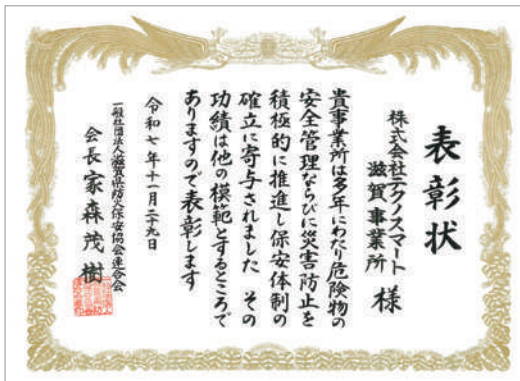 表彰状
株式会社テクノスマート
滋賀事業所 様
貴事業所は多年にわたり危険物の
安全管理ならびに災害防止を
積極的に推進し保安体制の
確立に寄与されました その
功績は他の模範とするところで
ありますので表彰します
令和七年十一月二十九日
一般社団法人滋賀県防火保安協会連合会
会長 家森茂樹